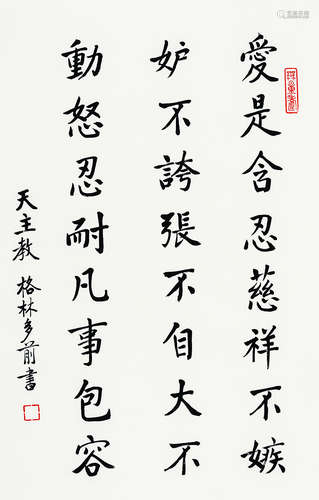 愛是含忍慈祥不嫉
妒不誇張不自大不
動怒忍耐凡事包容
天主教 格林多前書